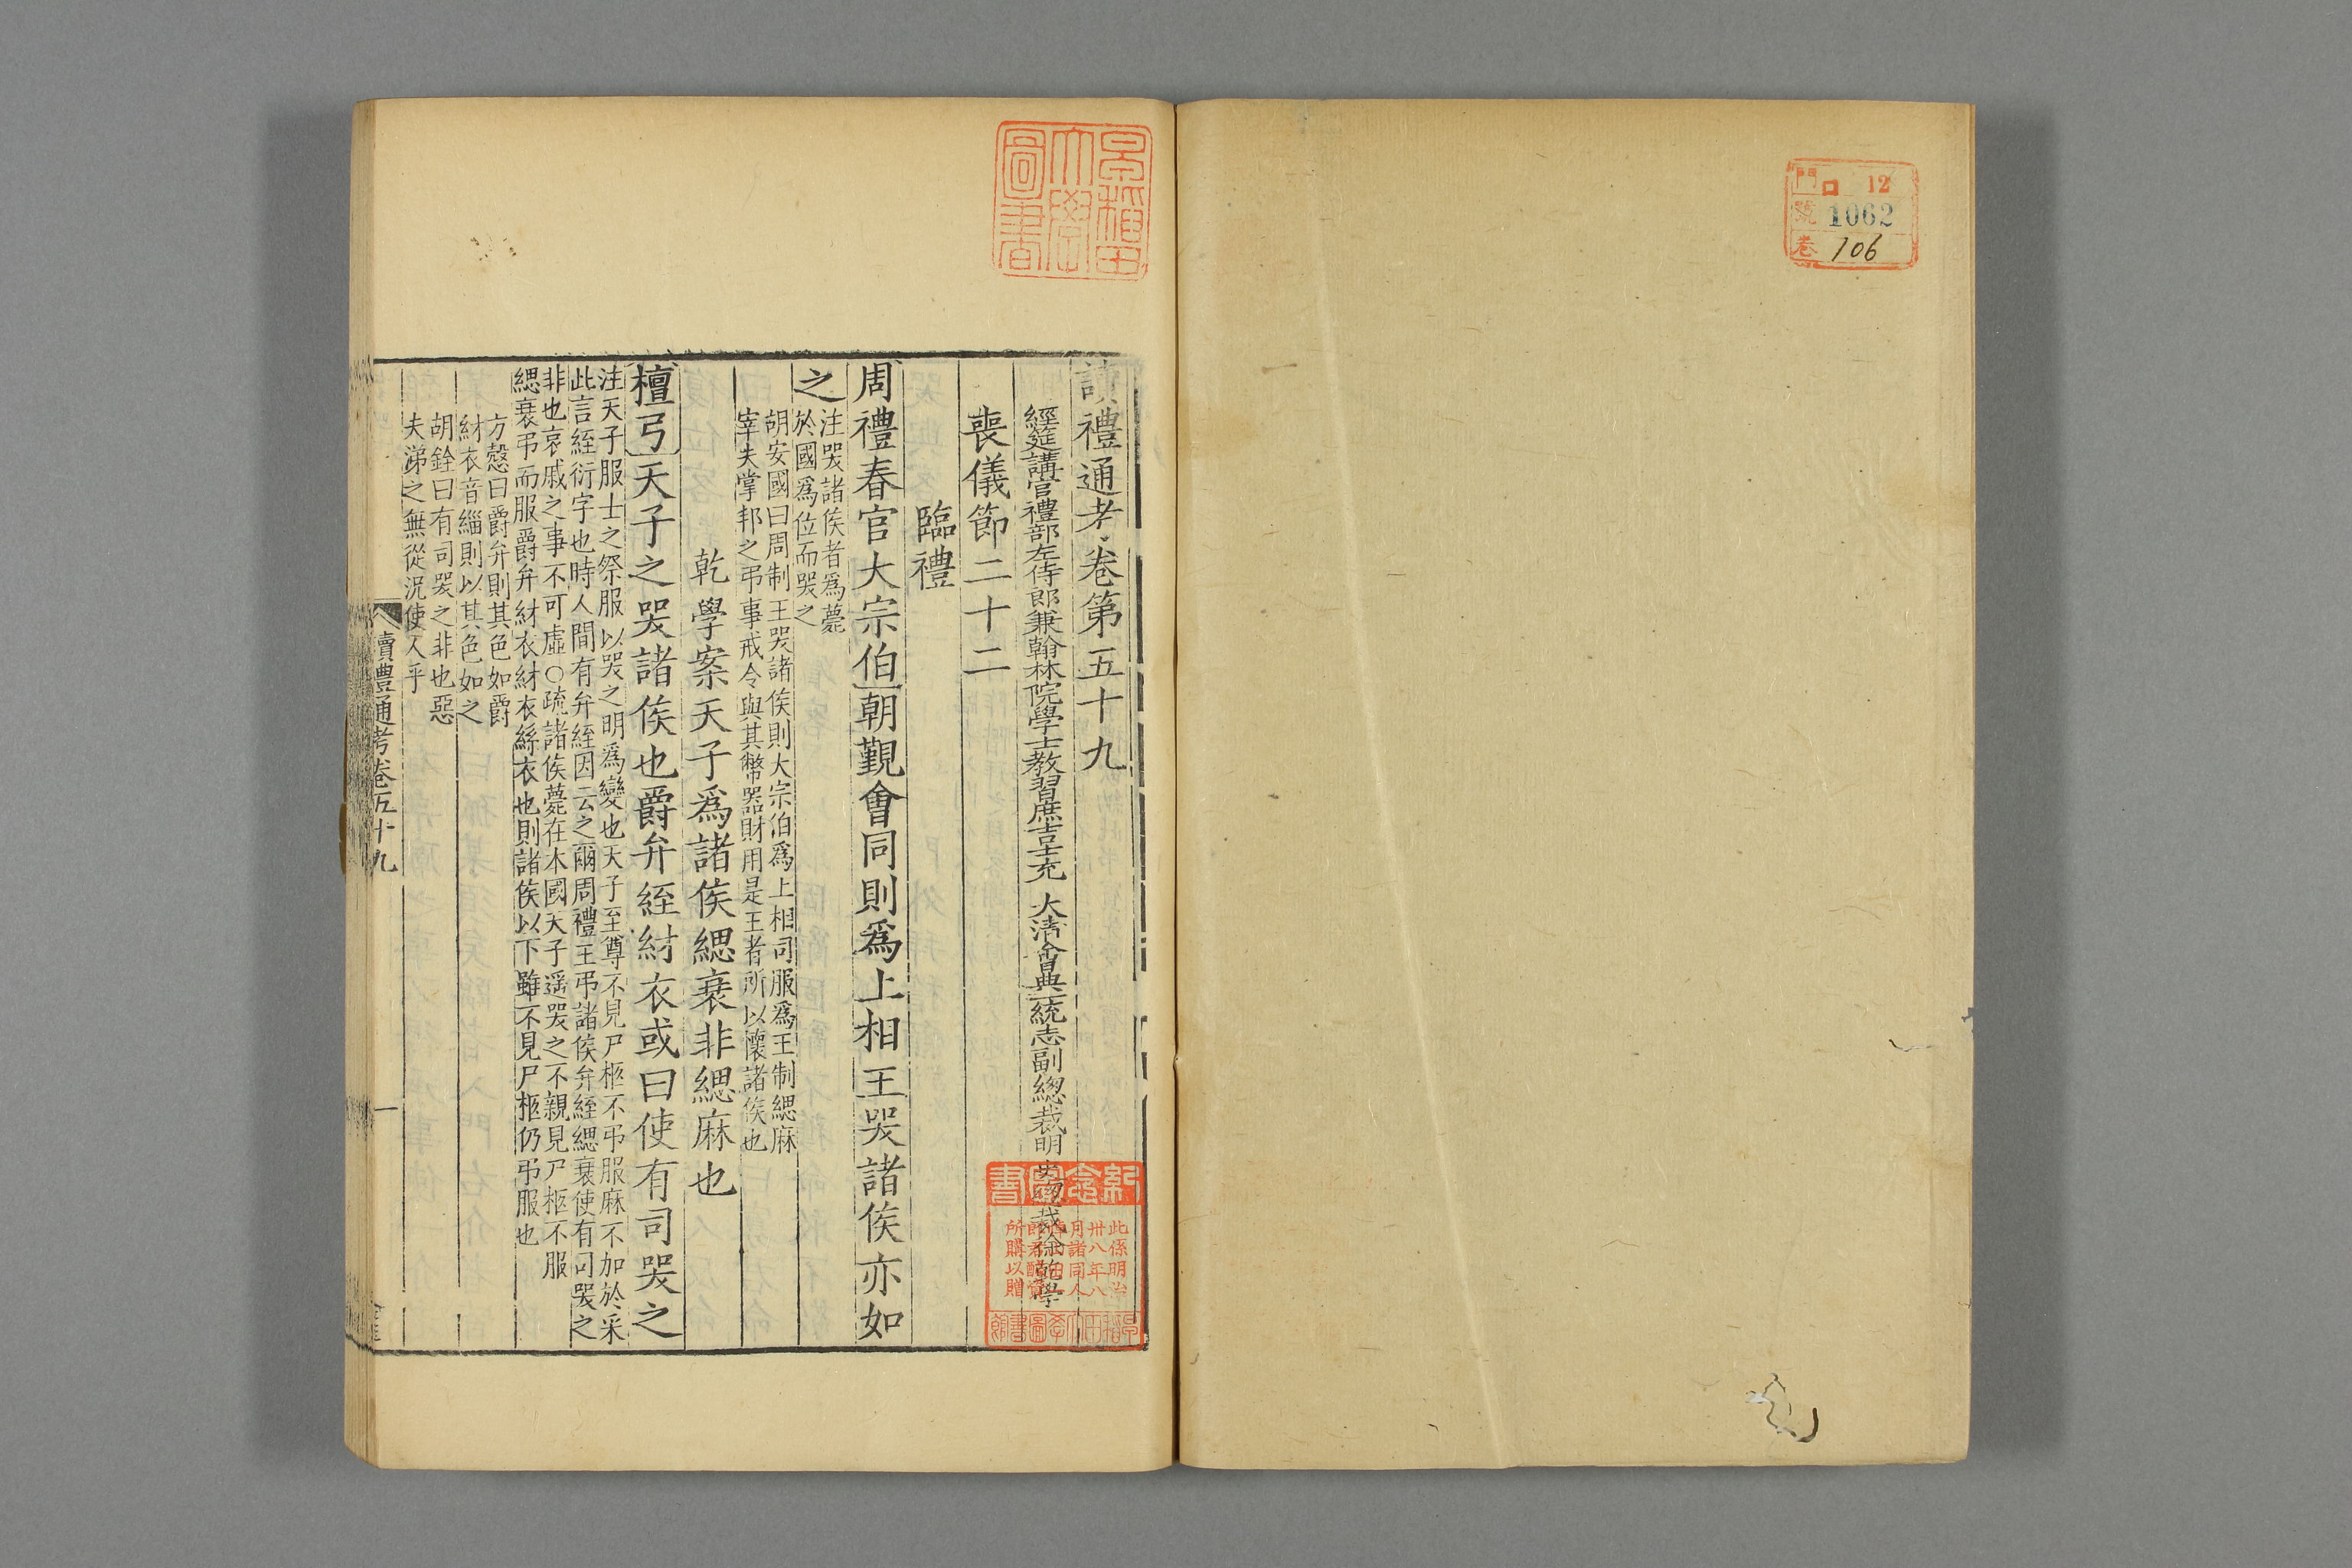 門 口 12
號 1062
卷 106
早稻田
大學
圖書
讀禮通考卷第五十九
經筵講官禮部左侍郎兼翰林院學士教習庶吉士充 大清會典一統志副總裁明史總裁徐乾學
喪儀節二十二
臨禮
周禮春官大宗伯朝覲會同則爲上相王哭諸侯亦如
之
注哭諸侯者爲薨
於國爲位而哭之
胡安國曰周制王哭諸侯則大宗伯爲上相司服爲王制緦麻
宰夫掌邦之弔事戒令與其幣器財用是王者所以懷諸侯也
乾學案天子爲諸侯緦衰非緦麻也
檀弓天子之哭諸侯也爵弁絰紂衣或曰使有司哭之
注天子服士之祭服以哭之明爲變也天子至尊不見尸柩不弔服麻不加於采
此言絰衍字也時人間有弁絰因云之爾周禮王弔諸侯弁絰緦衰使有司哭之
非也哀戚之事不可虛○疏諸侯薨在本國天子遥哭之不親見尸柩不服
緦衰弔而服爵弁紂衣紂衣絲衣也則諸侯以下雖不見尸柩仍弔服也
方慤曰爵弁則其色如爵
紂衣音緇則以其色如之
胡銓曰有司哭之非也惡
夫涕之無從況使人乎
讀禮通考卷五十九
一
紀念圖書
此係明治
卅八年八
月諸同人
所購以贈
早稻田大學圖書館